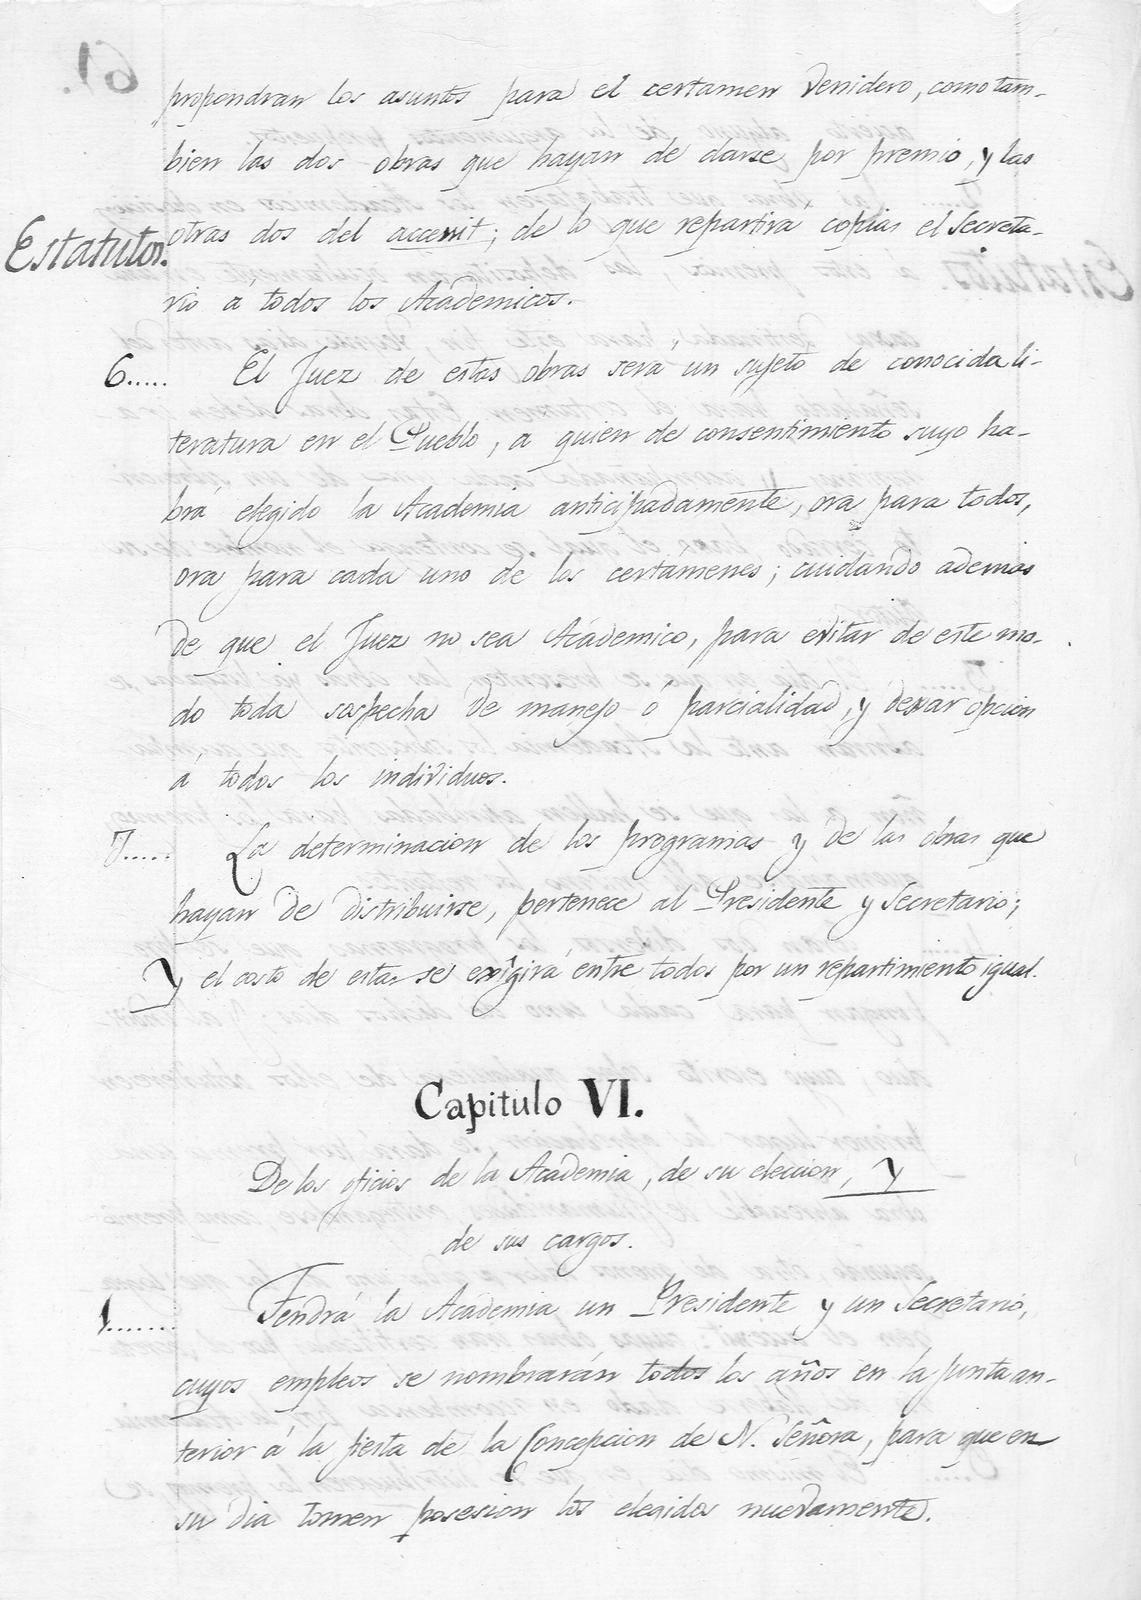 propondran los asuntos para el certamen venidero, como tam-
bien las dos obras que hayan de darse por premio, y las
Estatutos. otras dos del accessit; de lo que repartirá copias el Secreta-
rio á todos los Academicos.
6..... El Juez de estas obras será un sujeto de conocida li-
teratura en el Pueblo, a quien de consentimiento suyo ha-
brá elegido la Academia anticipadamente, ora para todos,
ora para cada uno de los certámenes; cuidando ademas
de que el Juez no sea Académico, para evitar de este mo-
do toda sospecha de manejo ó parcialidad, y dexar opcion
á todos los individuos.
7..... La determinacion de los programas y de las obras que
hayan de distribuirse, pertenece al Presidente y Secretario;
y el costo de estas se exîgirá entre todos por un repartimiento igual.
Capitulo VI.
De los oficios de la Academia, de su eleccion, y
de sus cargos.
1....... Tendrá la Academia un Presidente y un Secretario,
cuyos empleos se nombrarán todos los años en la junta an-
terior á la fiesta de la Concepcion de N. Señora, para que en
su dia tomen posesion los elegidos nuevamente.